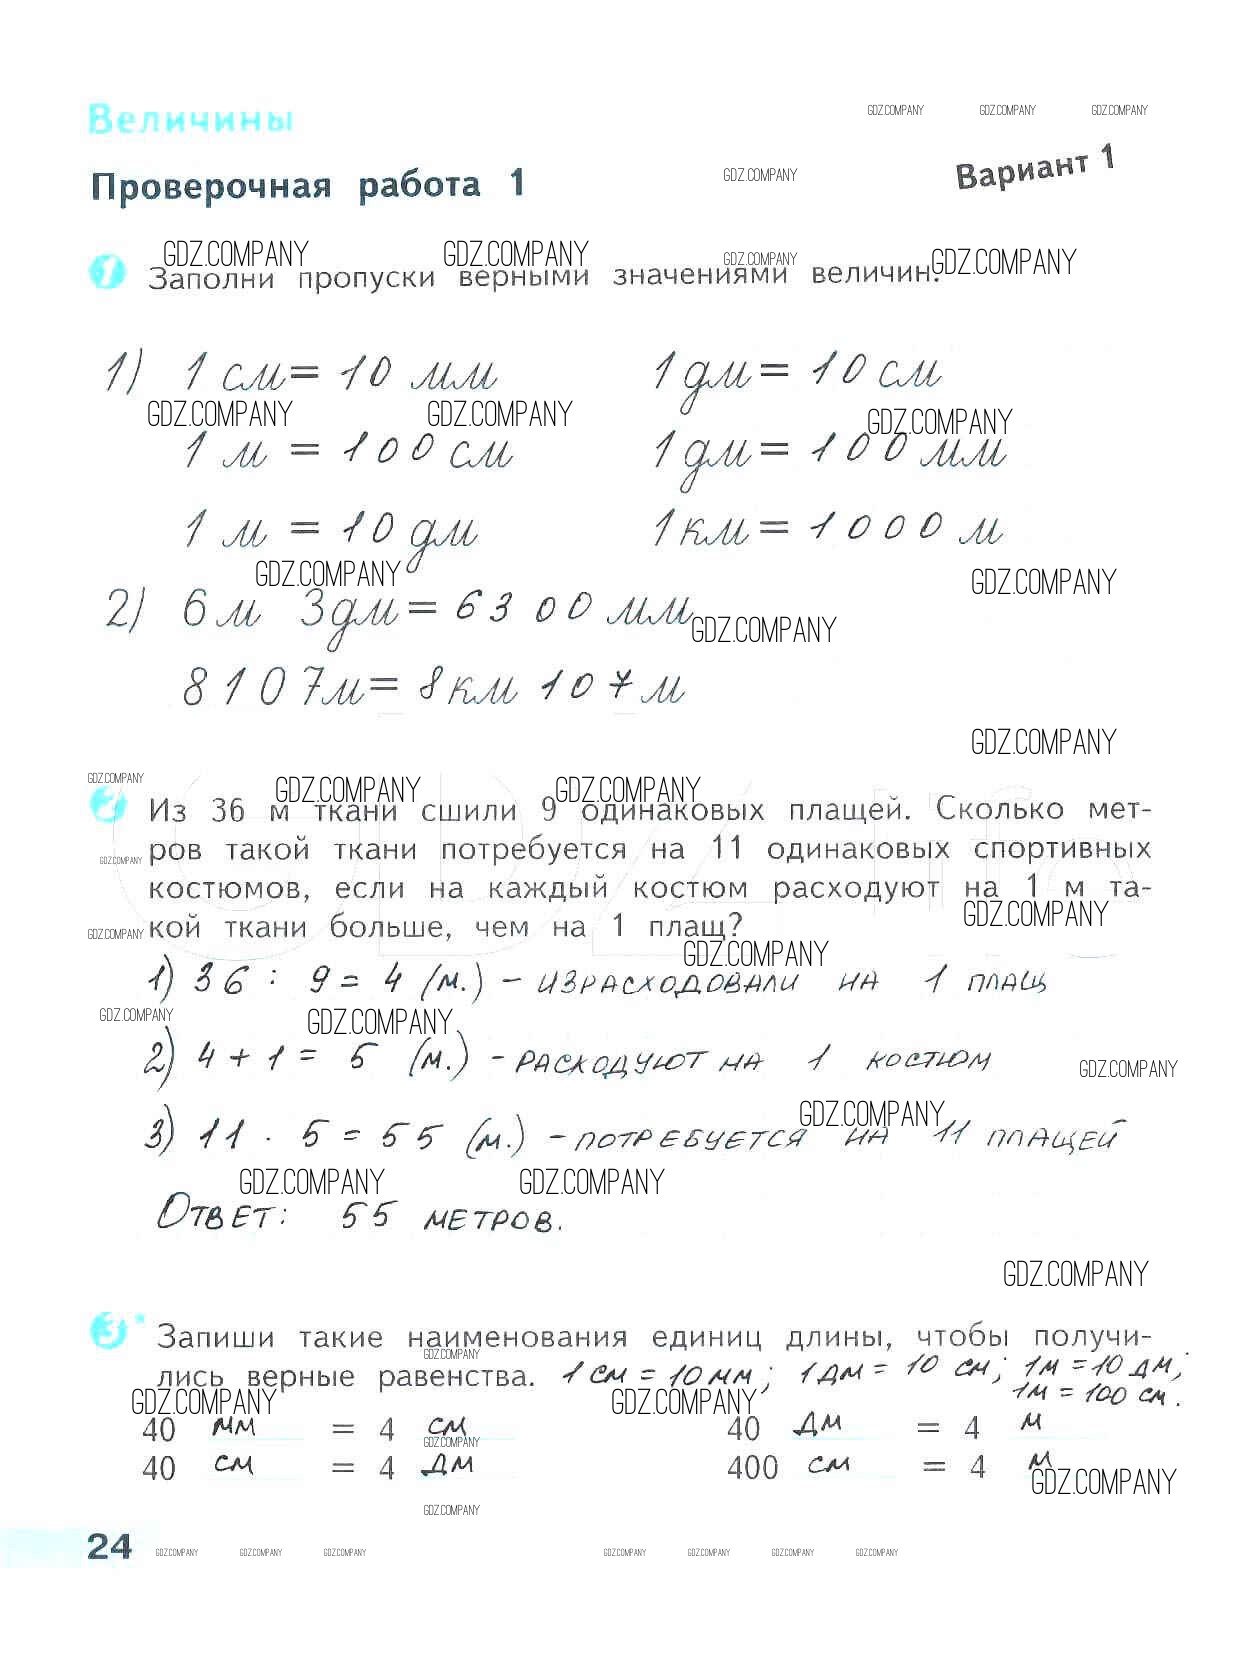 Величины
GDZ.COMPANY GDZ.COMPANY GDZ.COMPANY
Проверочная работа 1 GDZ.COMPANY Вариант 1
GDZ.COMPANY GDZ.COMPANY GDZ.COMPANY GDZ.COMPANY
1 Заполни пропуски верными значениями величин.
1) 1 см = 10 мм 1 дм = 10 см
GDZ.COMPANY GDZ.COMPANY GDZ.COMPANY
1 м = 100 см 1 дм = 100 мм
1 м = 10 дм 1 км = 1000 м
GDZ.COMPANY GDZ.COMPANY
2) 6 м 3 дм = 6300 мм
GDZ.COMPANY
8107 м = 8 км 107 м
GDZ.COMPANY
GDZ.COMPANY GDZ.COMPANY GDZ.COMPANY
2 Из 36 м ткани сшили 9 одинаковых плащей. Сколько мет-
GDZ.COMPANY ров такой ткани потребуется на 11 одинаковых спортивных
костюмов, если на каждый костюм расходуют на 1 м та-
GDZ.COMPANY
GDZ.COMPANY кой ткани больше, чем на 1 плащ?
GDZ.COMPANY
1) 36 : 9 = 4 (м.) – израсходовали на 1 плащ
GDZ.COMPANY GDZ.COMPANY
2) 4 + 1 = 5 (м.) – расходуют на 1 костюм
GDZ.COMPANY
GDZ.COMPANY
3) 11 · 5 = 55 (м.) – потребуется на 11 плащей
GDZ.COMPANY GDZ.COMPANY
Ответ: 55 метров.
GDZ.COMPANY
3* Запиши такие наименования единиц длины, чтобы получи-
GDZ.COMPANY
лись верные равенства. 1 см = 10 мм; 1 дм = 10 см; 1м = 10 дм;
1м = 100 см.
GDZ.COMPANY GDZ.COMPANY
40 мм = 4 см 40 дм = 4 м
GDZ.COMPANY
40 см = 4 дм 400 см = 4 м
GDZ.COMPANY
GDZ.COMPANY
24 GDZ.COMPANY GDZ.COMPANY GDZ.COMPANY GDZ.COMPANY GDZ.COMPANY GDZ.COMPANY GDZ.COMPANY